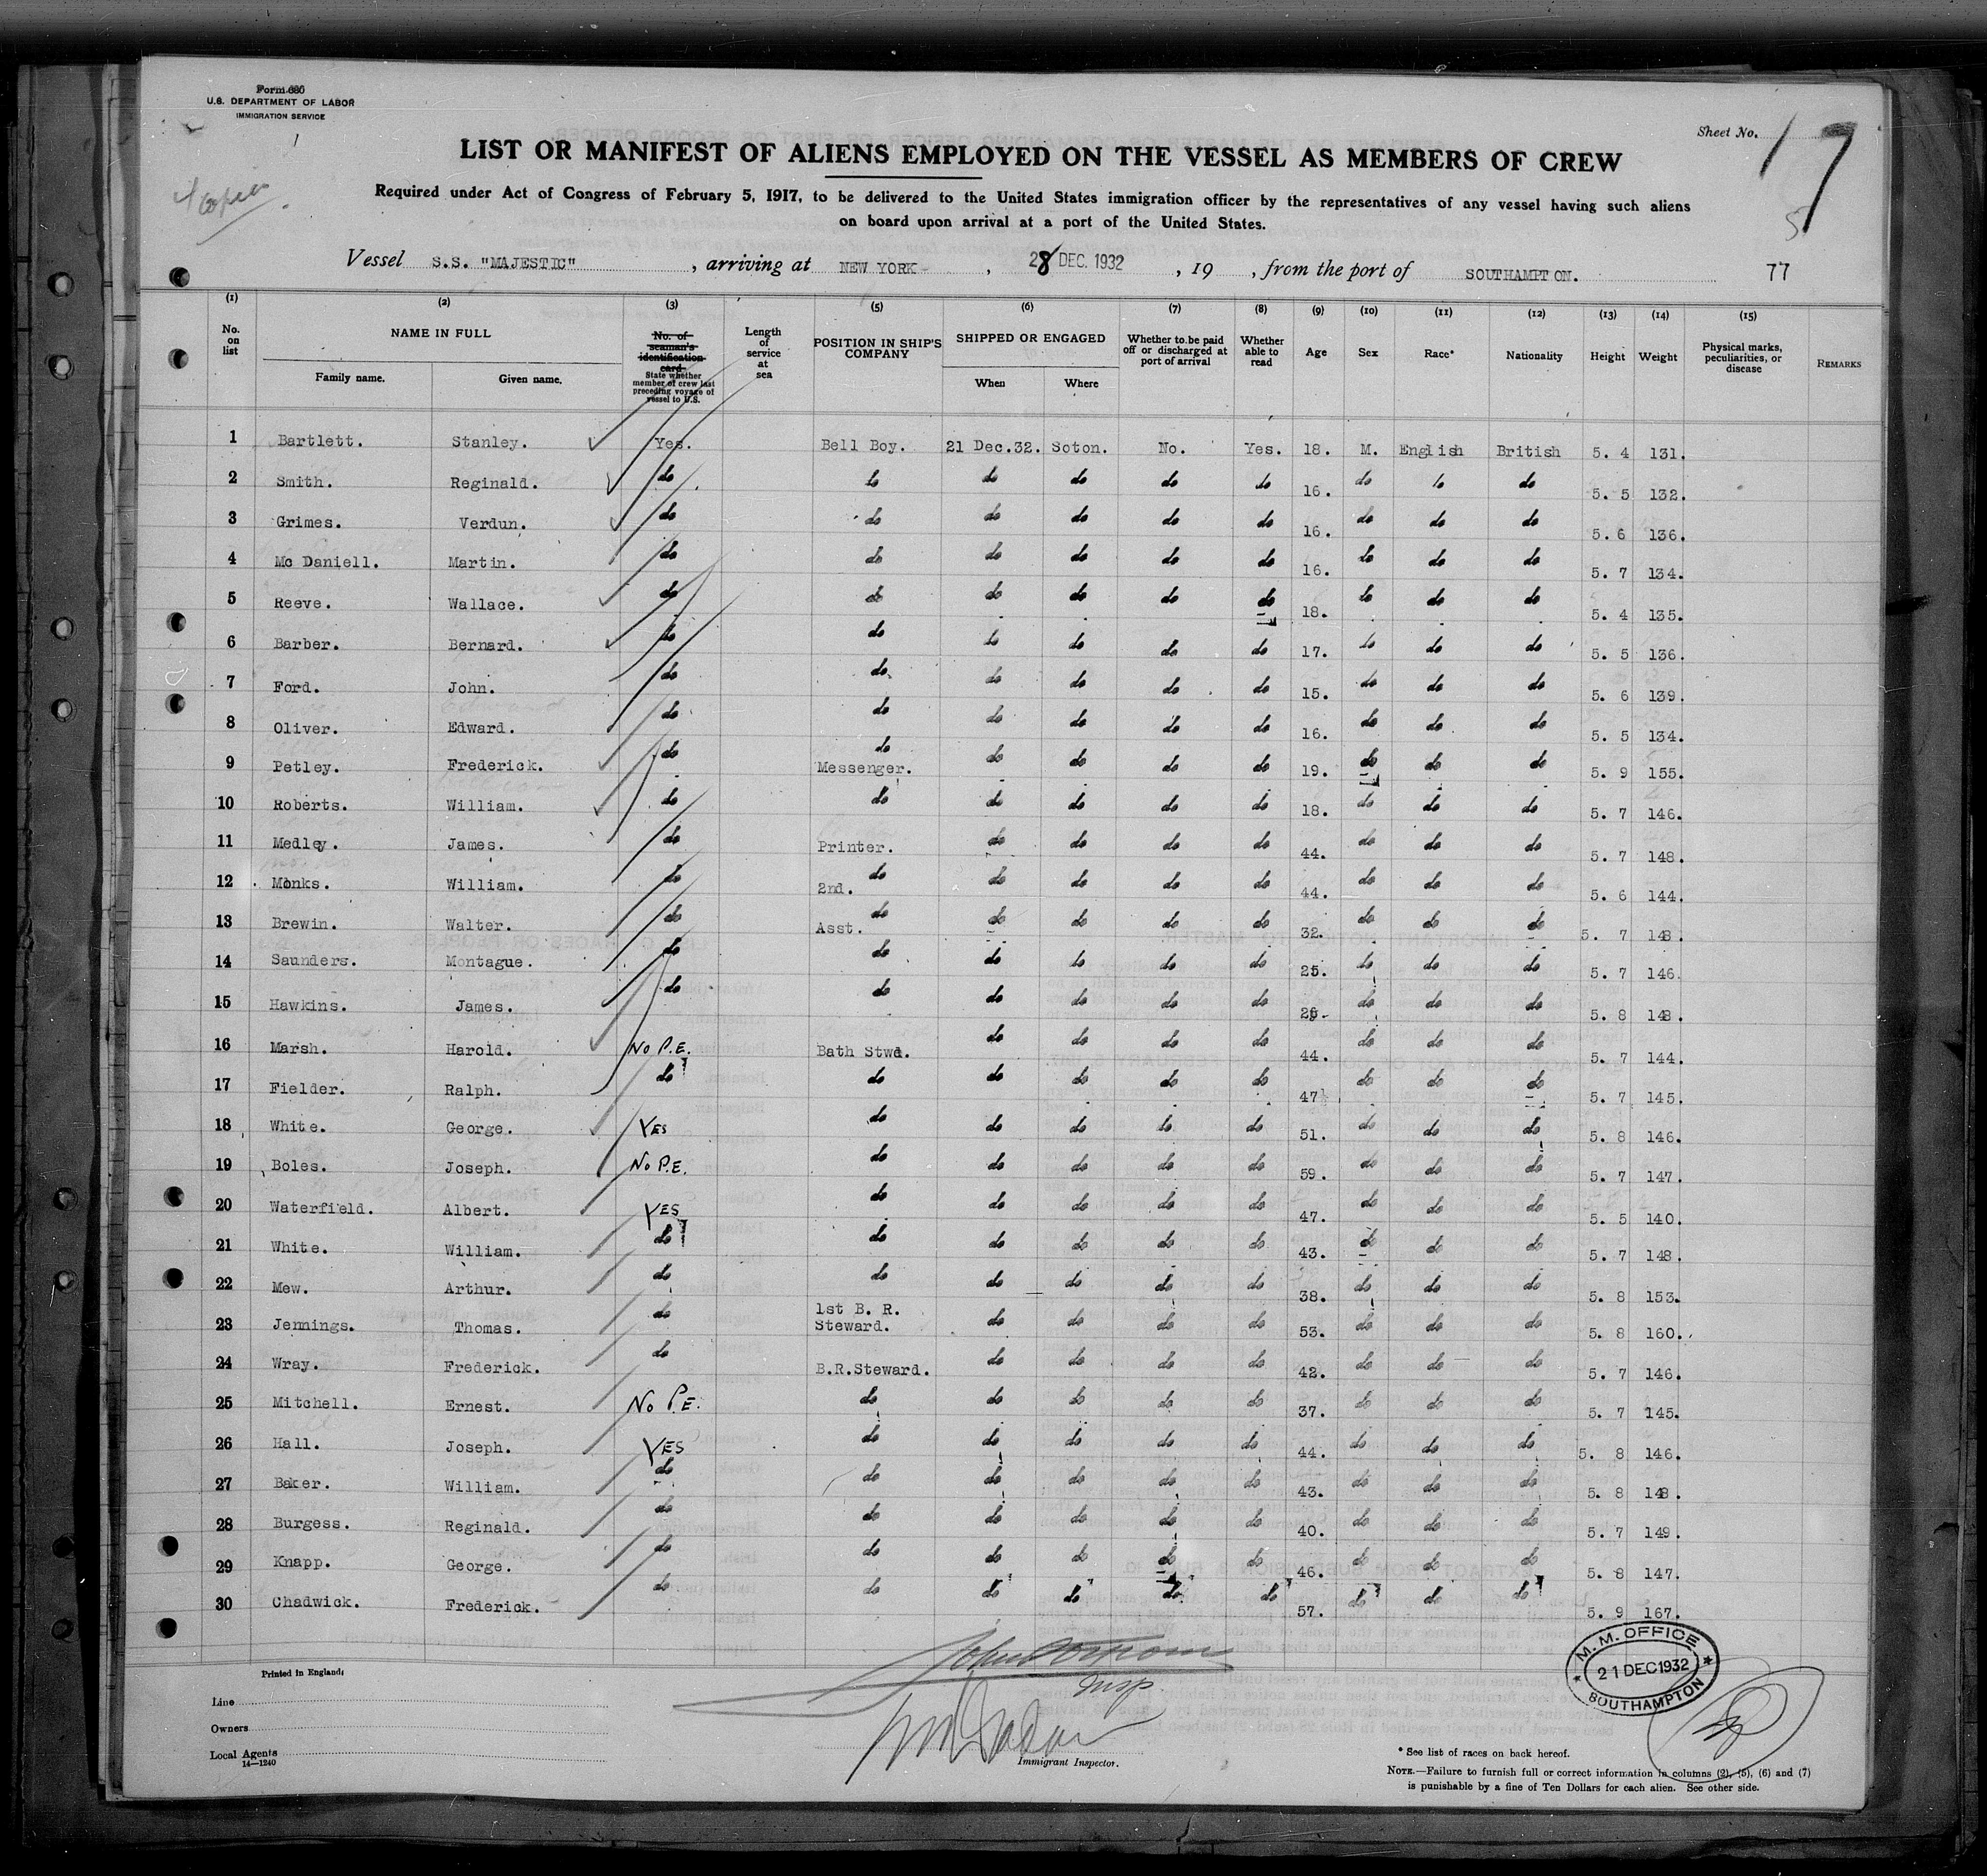 Form 680
U.S. DEPARTMENT OF LABOR
IMMIGRATION SERVICE
Sheet No. 17
4 Copies
5
LIST OR MANIFEST OF ALIENS EMPLOYED ON THE VESSEL AS MEMBERS OF CREW
Required under Act of Congress of February 5, 1917, to be delivered to the United States immigration officer by the representatives of any vessel having such aliens
on board upon arrival at a port of the United States.
Vessel S.S. "MAJESTIC", arriving at NEW YORK, 28 DEC. 1932, 19 , from the port of SOUTHAMPTON. 77
(1) (2) (3) (5) (6) (7) (8) (9) (10) (11) (12) (13) (14) (15)
No. on list NAME IN FULL Family name. Given name. No. of seaman's identification card State whether member of crew last preceding voyage of vessel to U.S. Length of service at sea POSITION IN SHIP'S COMPANY SHIPPED OR ENGAGED When Where Whether to be paid off or discharged at port of arrival Whether able to read Age Sex Race* Nationality Height Weight Physical marks, peculiarities, or disease REMARKS
1 Bartlett. Stanley. Yes. Bell Boy. 21 Dec.32. Soton. No. Yes. 18. M. English British 5. 4 131.
2 Smith. Reginald. do do do do do do 16. do do do 5. 5 132.
3 Grimes. Verdun. do do do do do do 16. do do do 5. 6 136.
4 Mc Daniell. Martin. do do do do do do 16. do do do 5. 7 134.
5 Reeve. Wallace. do do do do do do 18. do do do 5. 4 135.
6 Barber. Bernard. do do do do do do 17. do do do 5. 5 136.
7 Ford. John. do do do do do do 15. do do do 5. 6 139.
8 Oliver. Edward. do do do do do do 16. do do do 5. 5 134.
9 Petley. Frederick. do do Messenger. do do do do 19. do do do 5. 9 155.
10 Roberts. William. do do do do do do 18. do do do 5. 7 146.
11 Medley. James. do Printer. do do do do 44. do do do 5. 7 148.
12 Monks. William. do 2nd. do do do do do 44. do do do 5. 6 144.
13 Brewin. Walter. do Asst. do do do do do 32. do do do 5. 7 148.
14 Saunders. Montague. do do do do do do 25. do do do 5. 7 146.
15 Hawkins. James. do do do do do do do do do 5. 8 148.
16 Marsh. Harold. No P.E. Bath Stwd. do do do do 44. do do do 5. 7 144.
17 Fielder. Ralph. do do do do do do 47 do do do 5. 7 145.
18 White. George. YES do do do do do 51. do do do 5. 8 146.
19 Boles. Joseph. No P.E. do do do do do 59. do do do 5. 7 147.
20 Waterfield. Albert. YES do do do do do 47. do do do 5. 5 140.
21 White. William. do do do do do do 43. do do do 5. 7 148.
22 Mew. Arthur. do do do do do do 38. do do do 5. 8 153.
23 Jennings. Thomas. do 1st B. R. Steward. do do do do 53. do do do 5. 8 160.
24 Wray. Frederick. do B.R.Steward. do do do do 42. do do do 5. 7 146.
25 Mitchell. Ernest. No P.E. do do do do do 37. do do do 5. 7 145.
26 Hall. Joseph. YES do do do do do 44. do do do 5. 8 146.
27 Baker. William. do do do do do do 43. do do do 5. 8 148.
28 Burgess. Reginald. do do do do do do 40. do do do 5. 7 149.
29 Knapp. George. do do do do do do 46. do do do 5. 8 147.
30 Chadwick. Frederick. do do do do do do 57. do do do 5. 9 167.
Insp.
M. M. OFFICE
21 DEC 1932
SOUTHAMPTON
Printed in England:
Line
Owners
Local Agents
14—1240
Immigrant Inspector.
* See list of races on back hereof.
NOTE.—Failure to furnish full or correct information in columns (2), (5), (6) and (7)
is punishable by a fine of Ten Dollars for each alien. See other side.